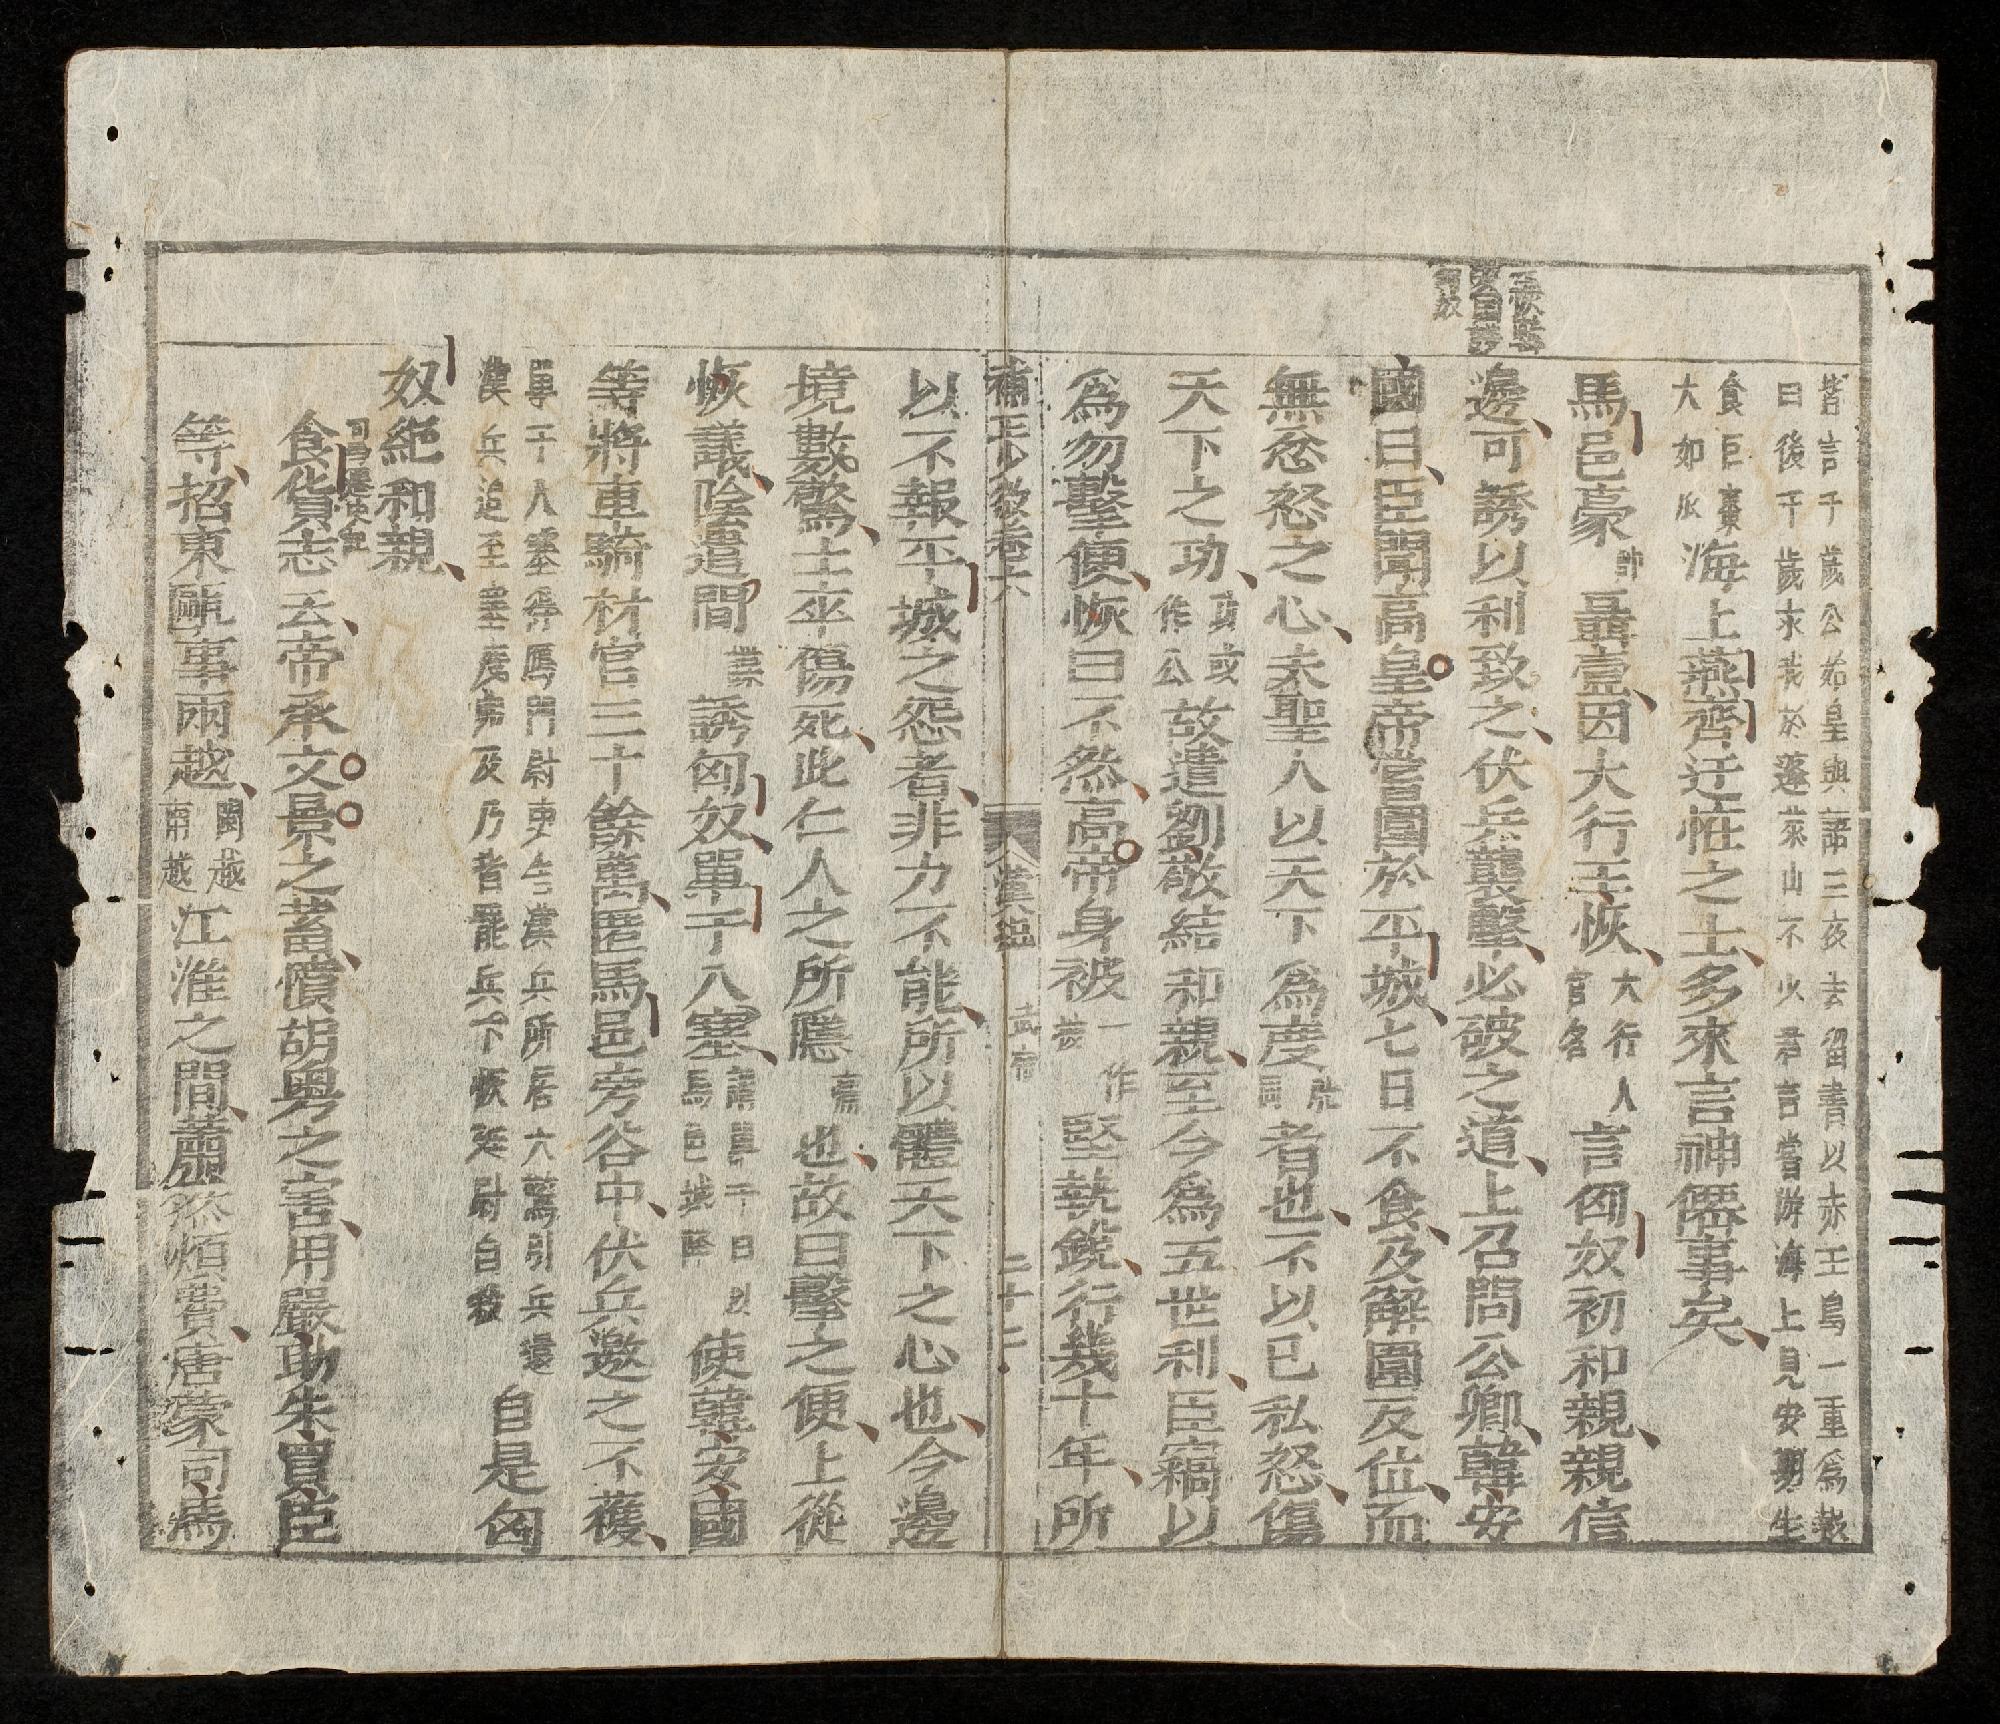 皆言千歲公始皇與語三夜去留書以赤玉舄一重爲越
曰後千歲求我於蓬萊山不少君言嘗游海上見安期生
食巨棗大如瓜海上燕齊迂怪之士多來言神僊事矣
馬邑豪帥聶壹因大行王恢大行人官名言匈奴初和親親信
邊可誘以利致之伏兵襲擊必破之道上召問公卿韓安
國曰臣聞高皇帝嘗圍於平城七日不食及解圍反位而
無忿怒之心夫聖人以天下爲度者也不以已私怒傷
天下之功功或作公故遣劉敬結和親至今爲五世利臣竊以
爲勿擊便恢曰不然高帝身被一作堅執銳行幾十年所
漢紀 武帝 二十二
以不報平城之怨者非力不能所以體天下之心也今邊
境數驚士卒傷死此仁人之所隱也故曰擊之便上從
恢議陰遣間誘匈奴單于入塞使韓安國
等將車騎材官三十餘萬匿馬邑旁谷中伏兵邀之不獲
單于入塞得鴈門尉史告漢兵所居大驚引兵還
漢兵追至塞度弗及乃皆罷兵下恢廷尉自殺自是匈
奴絕和親
食貨志云帝承文景之蓄憤胡粤之害用嚴助朱買臣
等招東甌事兩越閩越南越江淮之間蕭然煩費唐蒙司馬